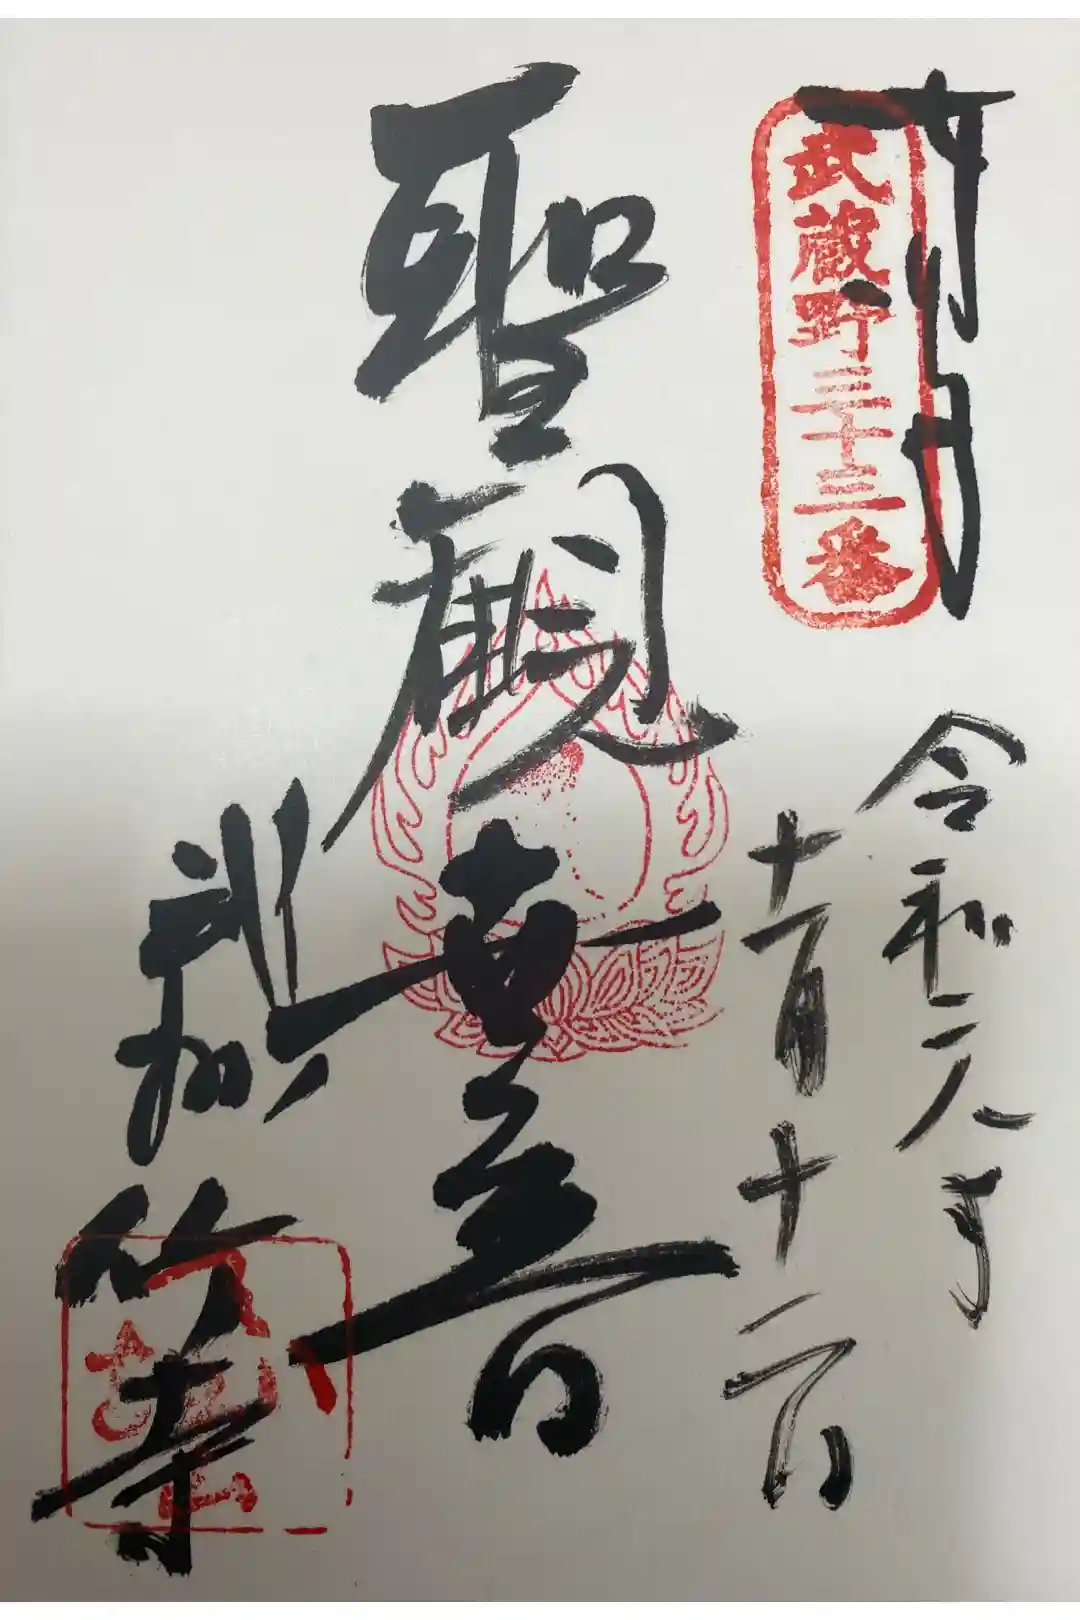 奉拝
武蔵野三十三番
令和元年
十一月十二日
聖観世音
武州竹寺